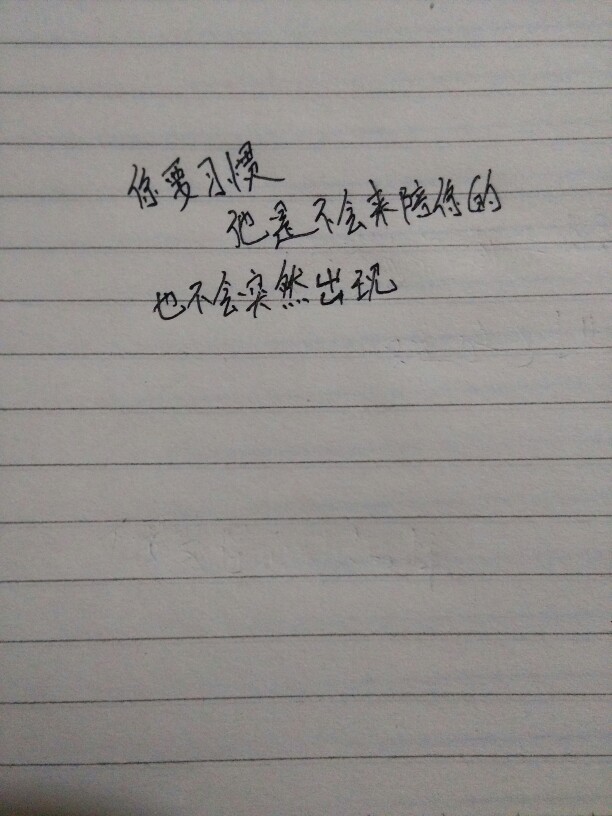 你要习惯
他是不会来陪你的
也不会突然出现